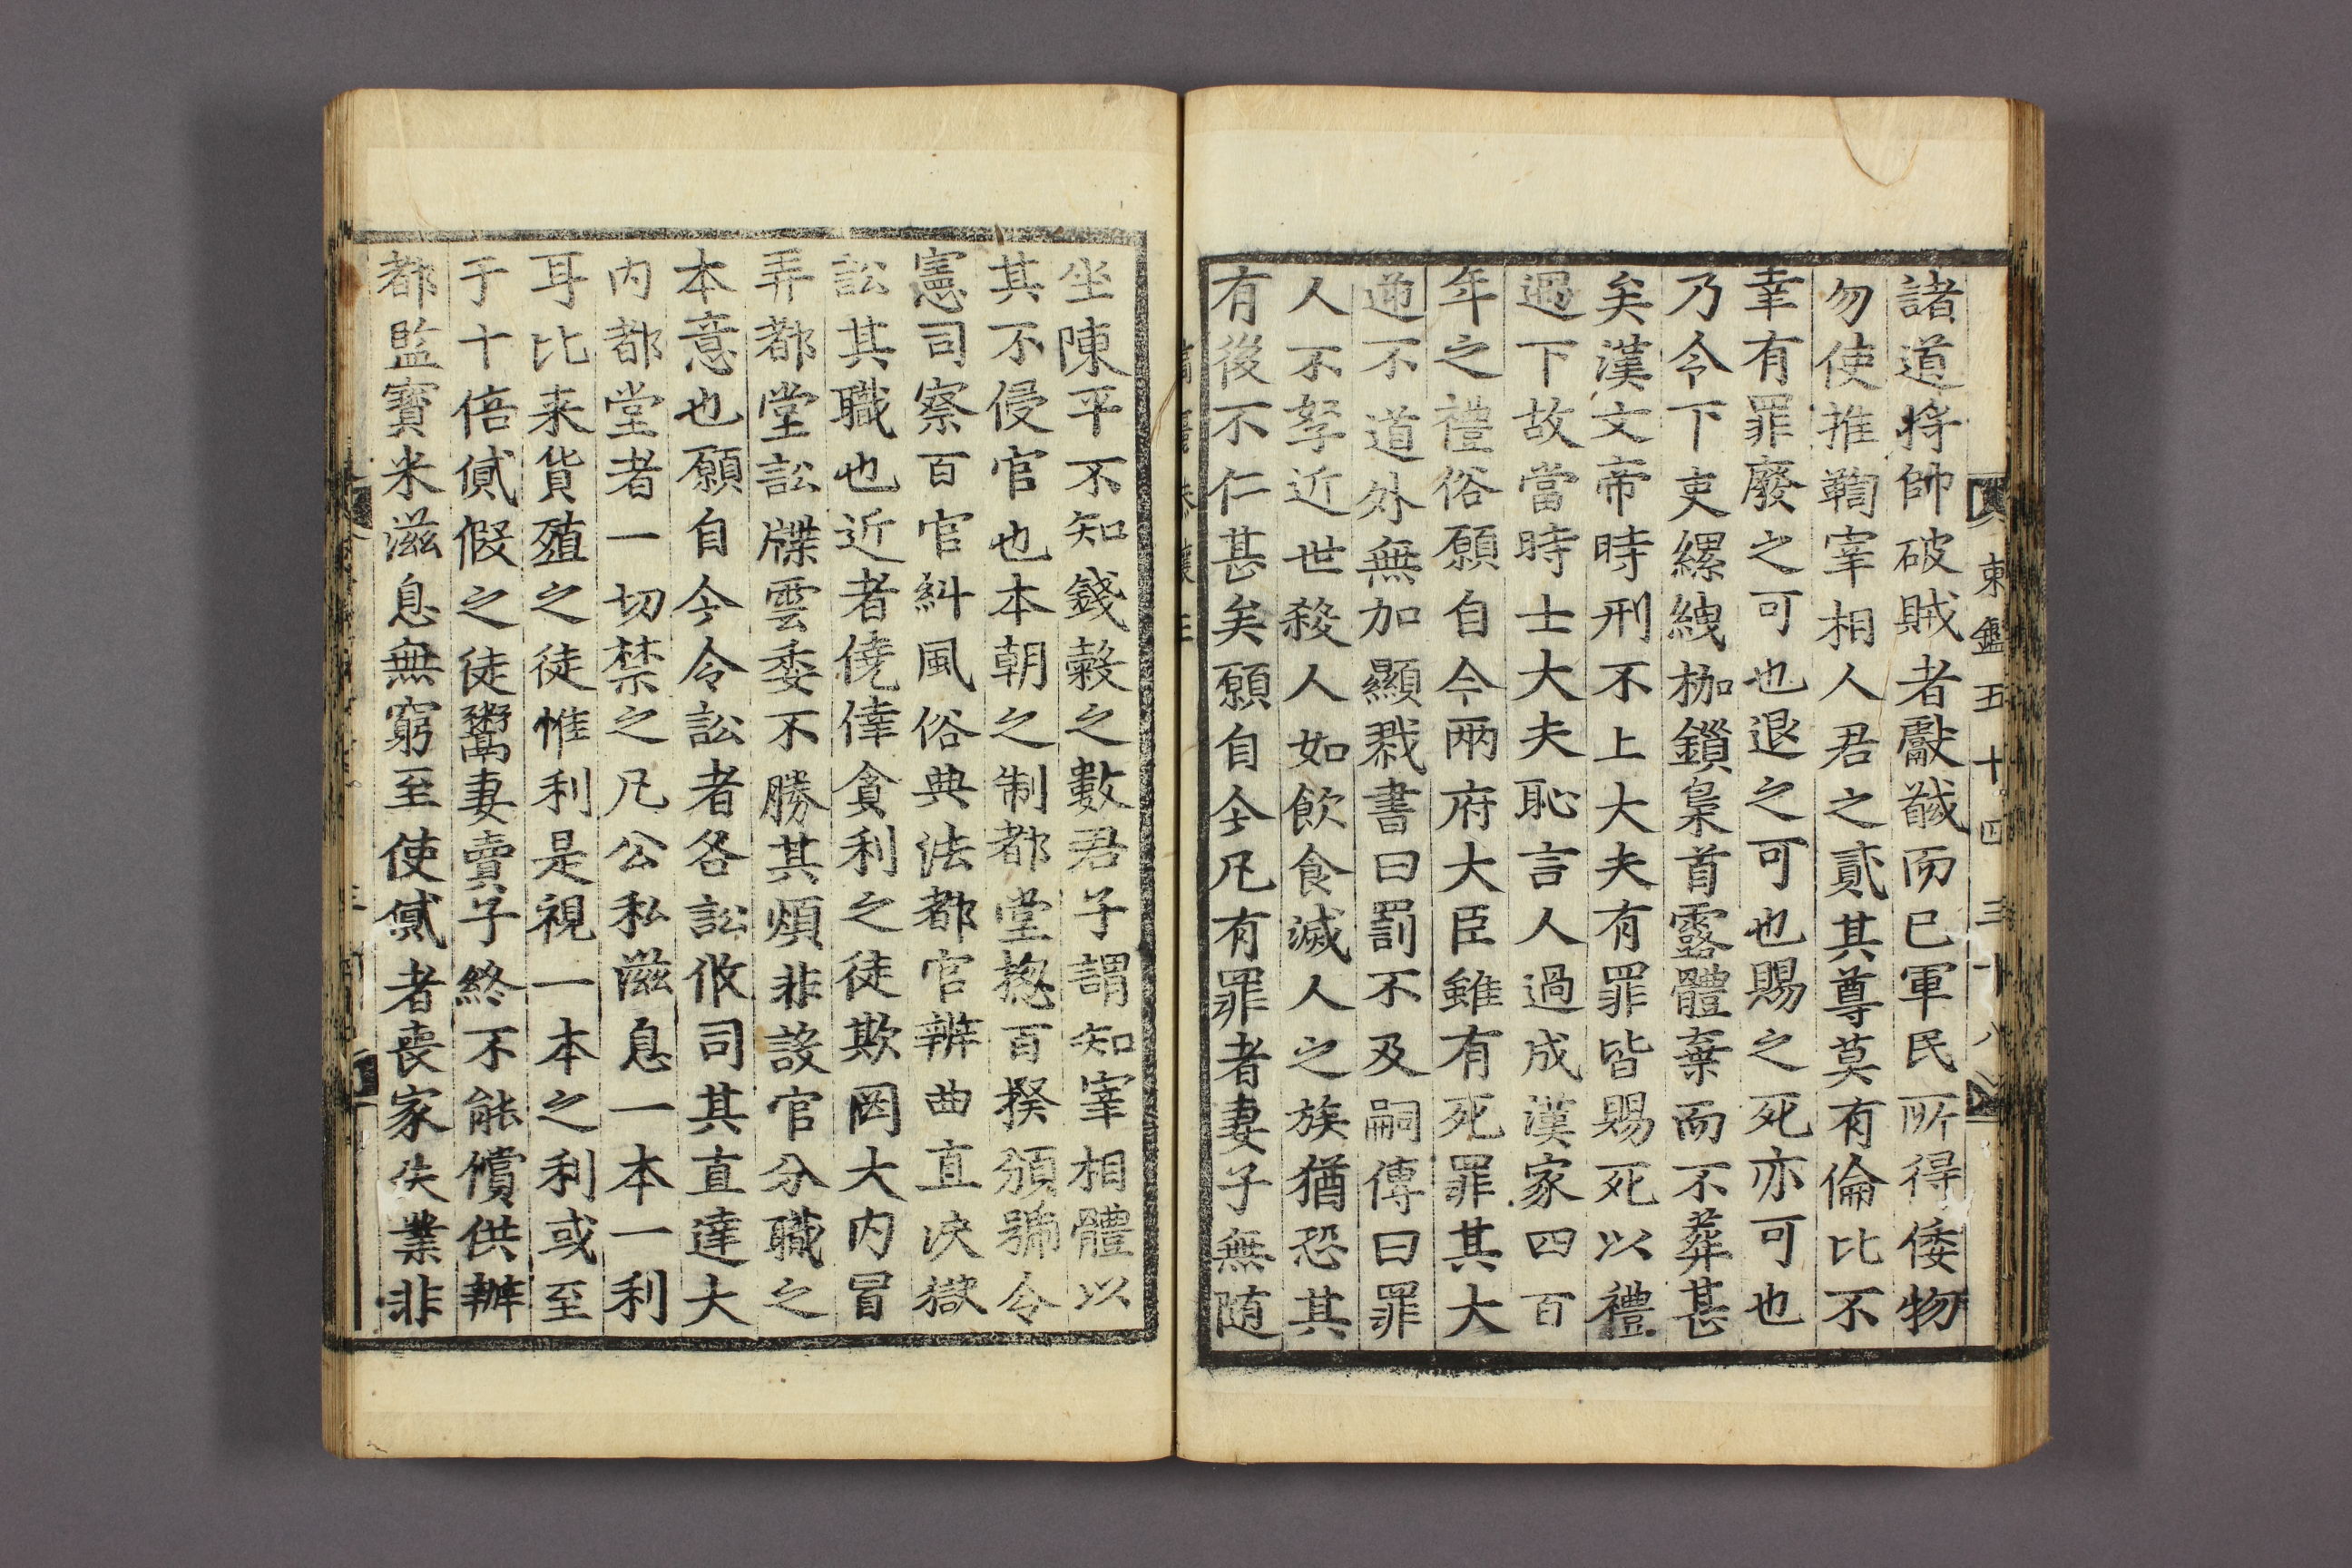 東鑑五十四 三十八
諸道將帥破賊者獻馘而已軍民所得倭物
勿使推鞫宰相人君之貳其尊莫有倫比不
幸有罪廢之可也退之可也賜之死亦可也
乃令下吏縲絏枷鎖梟首露體棄而不葬甚
矣漢文帝時刑不上大夫有罪皆賜死以禮
過下故當時士大夫恥言人過成漢家四百
年之禮俗願自今兩府大臣雖有死罪其大
逆不道外無加顯戮書曰罰不及嗣傳曰罪
人不孥近世殺人如飲食滅人之族猶恐其
有後不仁甚矣願自今凡有罪者妻子無随
坐陳平不知錢糓之數君子謂知宰相體以
其不侵官也本朝之制都堂摠百揆頒號令
憲司察百官糾風俗典法都官辨曲直决獄
訟其職也近者僥倖貪利之徒欺罔大内冒
弄都堂訟牒雲委不勝其煩非設官分職之
本意也願自今令訟者各訟攸司其直達大
内都堂者一切禁之凡公私滋息一本一利
耳比来貨殖之徒惟利是視一本之利或至
于十倍貣假之徒鬻妻賣子終不能償供辦
都監寳米滋息無窮至使貣者喪家失業非